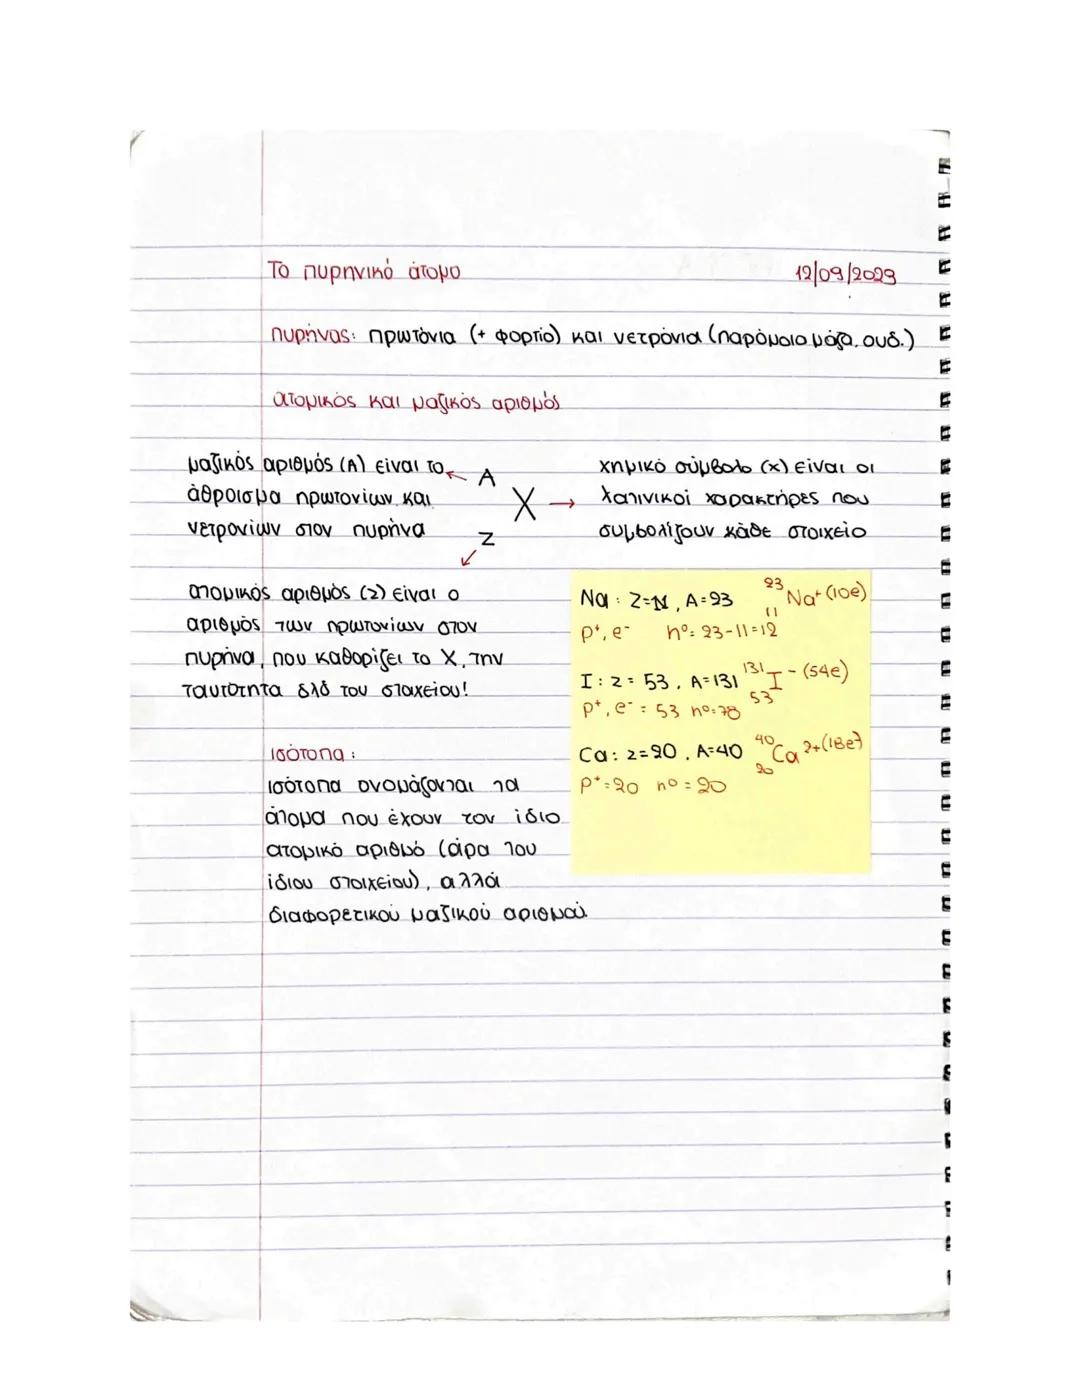 Το πυρηνικό άτομο 12/09/2023
πυρήνας: πρωτόνια (+ φορτίο) και νετρόνια (παρόμοια μάζα, ουδ.)
ατομικός και μαζικός αριθμός
μαζικός αριθμός (Α) είναι το
άθροισμα πρωτονίων και
νετρονίων στον πυρήνα
A
X
Z
χημικό σύμβολο (x) είναι οι
λατινικοί χαρακτήρες που
συμβολίζουν κάθε στοιχείο
ατομικός αριθμός (z) είναι ο
αριθμός των πρωτονίων στον
πυρήνα, που καθορίζει το Χ, την
ταυτότητα δλδ του στοιχείου!
Na: Z=11, A=23 23 11 Na+ (10e)
p+, e- n°= 23-11=12
I: z= 53, A=131 131 53 I- (54e)
p+, e- = 53 n°=78
Ca: z=20, A=40 40 20 Ca 2+ (18e)
p+=20 n°=20
ισότοπα:
ισότοπα ονομάζονται τα
άτομα που έχουν τον ίδιο
ατομικό αριθμό (άρα του
ίδιου στοιχείου), αλλά
διαφορετικού μαζικού αριθμού